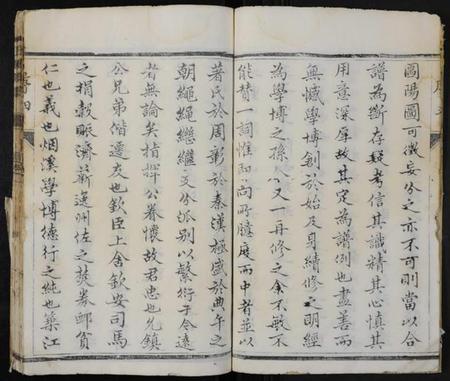 圖陽圖可徵妄分之亦不可則當以合
譜為斷存疑考信其識精其心慎其
用意深厚故其定為譜例也盡善而
無憾學博創於始及身續修之明經
為學博之孫八又一再修之余不敏不
能贊一詞惟即向所臆度而中者並以
著氏於周彰於秦漢極盛於典午之
朝繩繩繼繼支分派別以繁衍于今遠
者無論矣指揮公眷懷故君忠也兄鎮
公兄弟偕遷友也欽臣上舍欽安司馬
之捐穀賑濟蘄連州佐之焚券郵貧
仁也義也烟溪學博德行之純也築江